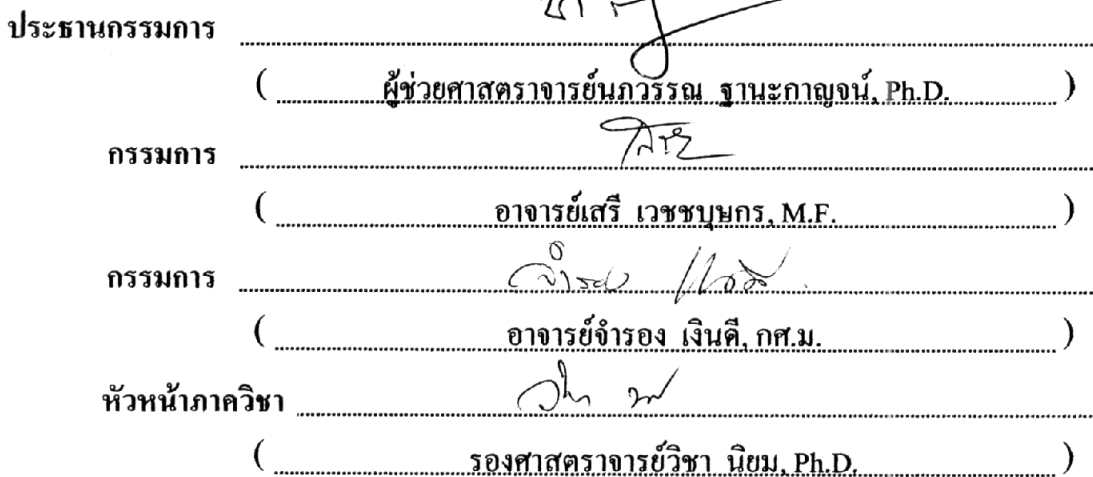 ประธานกรรมการ
( ผู้ช่วยศาสตราจารย์นภวรรณ ฐานะกาญจน์, Ph.D. )
กรรมการ
( อาจารย์เสรี เวชชบุษกร, M.F. )
กรรมการ
( อาจารย์จำรอง เงินดี, กศ.ม. )
หัวหน้าภาควิชา
( รองศาสตราจารย์วิชา นิยม, Ph.D. )